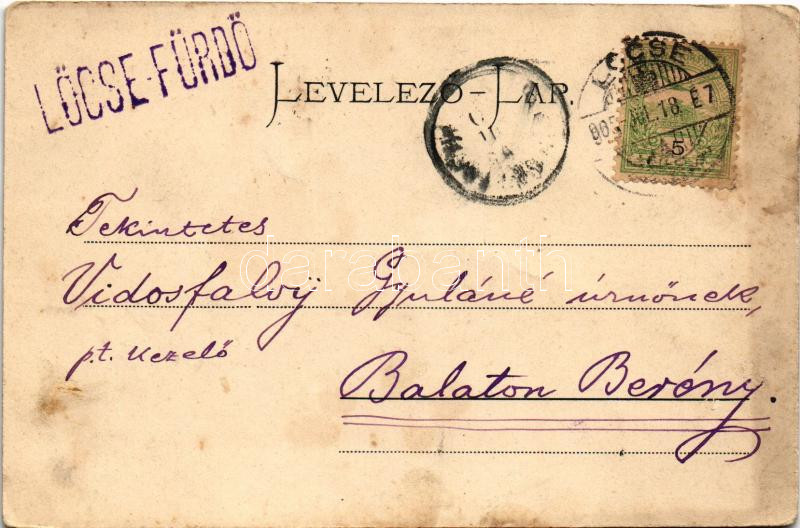 LŐCSE-FÜRDŐ
LEVELEZŐ-LAP.
LŐCSE
905 18 É7
5
Tekintetes
Vidosfalvÿ Gyuláné úrnőnek,
p.t. kezelő
Balaton Berény.
darabanth